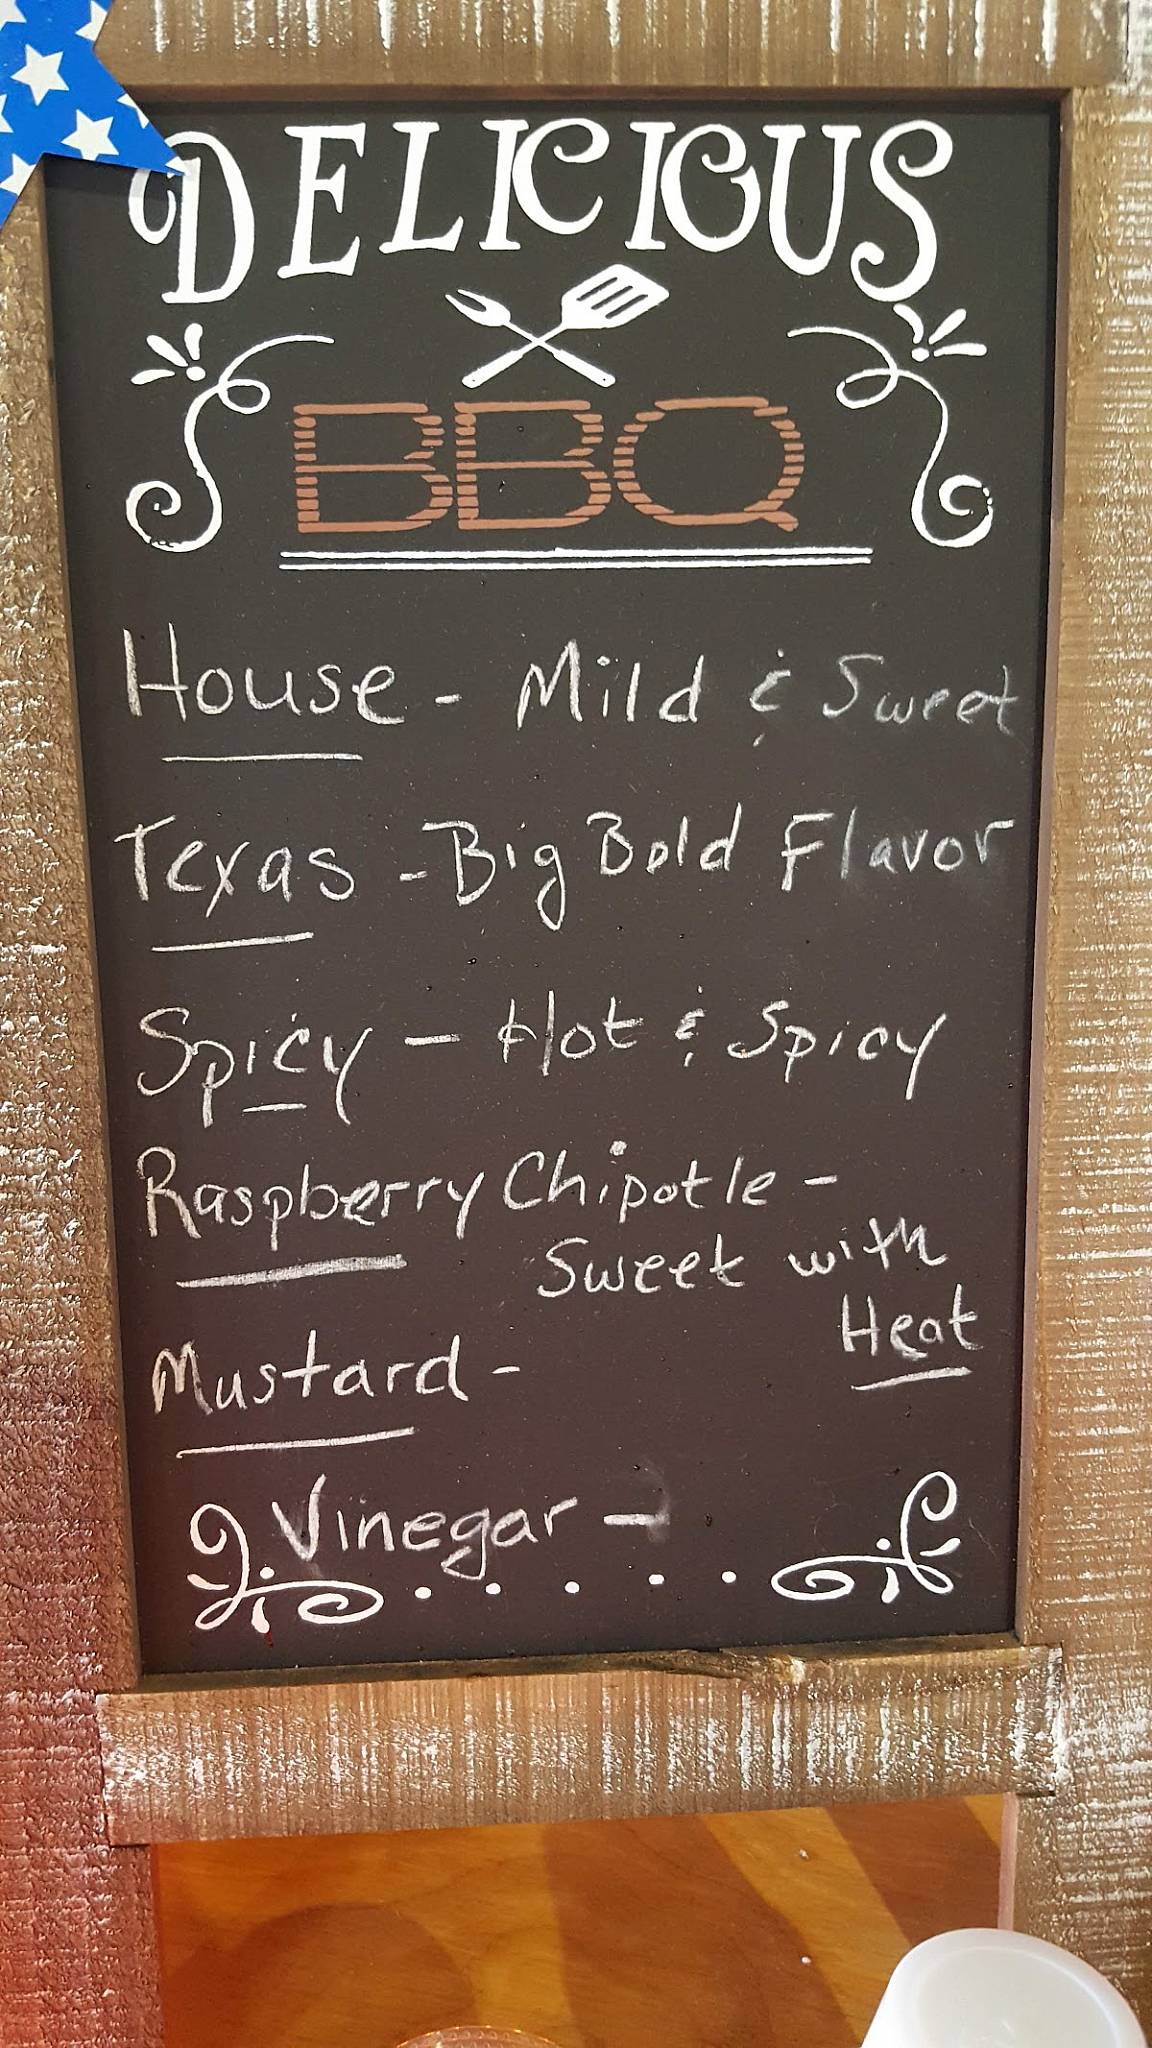 DELICIOUS
BBQ
House - Mild & Sweet
Texas - Big Bold Flavor
Spicy - Hot & Spicy
Raspberry Chipotle -
Sweet with
Heat
Mustard -
Vinegar -